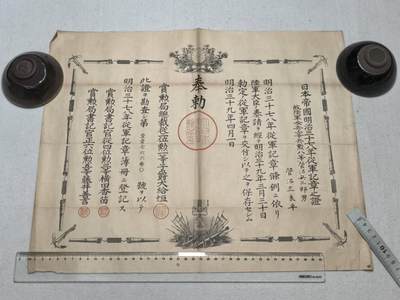 日本帝國明治三十七八年從軍記章之證
明治三十七八年從軍記章條例ニ依リ
陸軍大臣ノ奏請ヲ經テ明治三十九年三月三十日
勅定ノ從軍記章ヲ交付シ以テ之ヲ保存セシム
明治三十九年四月一日
奉勅
賞勲局總裁從二位勲一等子爵大給恒
此證ヲ勘査シ第
號ヲ以テ
明治三十七八年從軍記章簿冊ニ登記ス
賞勲局書記官從四位勲三等横田香苗
賞勲局書記官正六位勲五等藤井善言